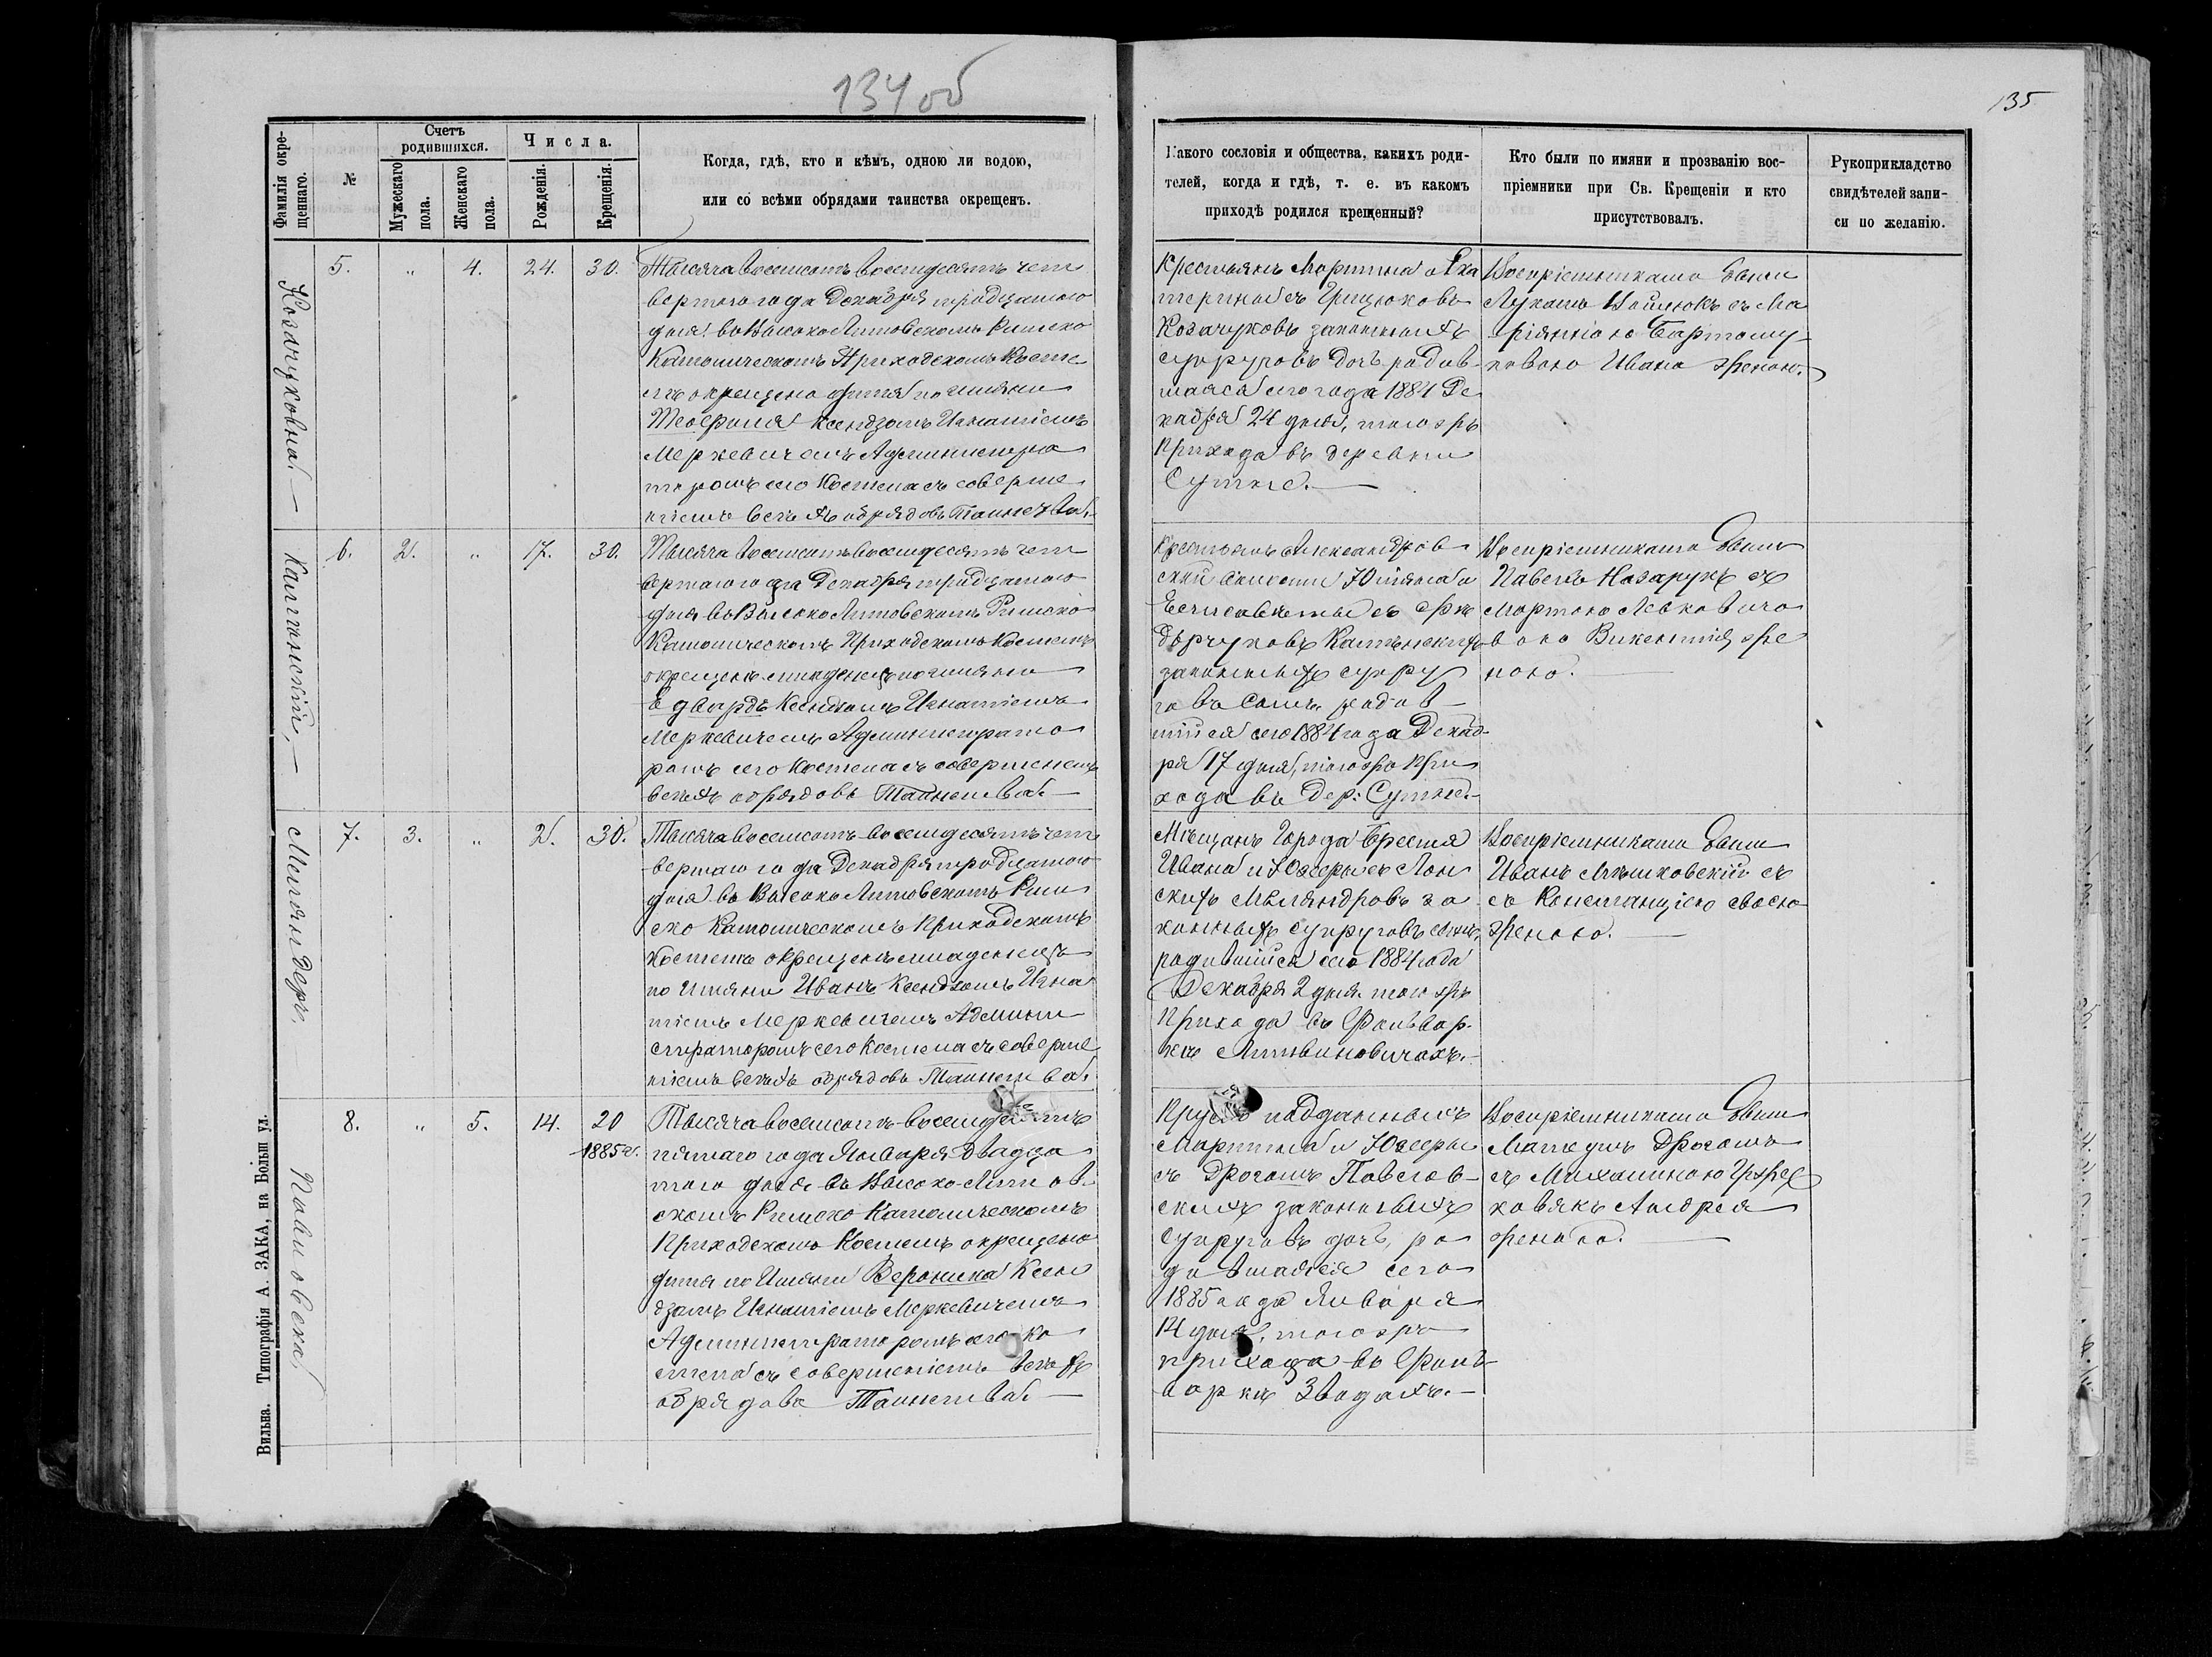 134 об
135
Фамилія окре-
щеннаго.
№
Счетъ
родившихся.
Мужескаго
пола.
Женскаго
пола.
Числа.
Рожденія.
Крещенія.
Когда, гдѣ, кто и кѣмъ, одною ли водою,
или со всѣми обрядами таинства окрещенъ.
Какого сословія и общества, какихъ роди-
телей, когда и гдѣ, т. е. въ какомъ
приходѣ родился крещенный?
Кто были по имяни и прозванію вос-
пріемники при Св. Крещеніи и кто
присутствовалъ.
Рукоприкладство
свидѣтелей запи-
си по желанію.
Козачуковна.
5.
„
4.
24.
30.
Тысяча восемсотъ восемдесятъ чет
вертого года Декабря тридцатого
дня въ Высоко Литовскомъ Римско
Католическомъ Приходскомъ Косте
лѣ окрещено дитя по имяни
Теофиля Ксендзомъ Игнатіемъ
Меркевичемъ Администра
торомъ сего Костела съ соверше
ніемъ всѣхъ обрядовъ Таинства.
Крестьянъ Мартина и Ека
терины съ Грицюковъ
Козачуковъ законныхъ
супруговъ дочь родив-
шаяся сего года 1884 Де
кабря 24 дня, того жъ
Прихода въ деревни
Сутно.
Воспріемниками были
Лукашъ Войтюкъ съ Ма
ріянною Бартошу-
ковою Ивана женою.
6.
2.
„
17.
30.
Тысяча восемсотъ восемдесятъ чет
вертого года Декабря тридцатого
дня въ Высоко Литовскомъ Римско
Католическомъ Приходскомъ Костелѣ
окрещенъ младенецъ по имяни
Едвардъ Ксендзомъ Игнатіемъ
Меркевичемъ Администрато
ромъ сего Костела съ совершенемъ
всѣхъ обрядовъ Таинства.
Крестьянъ Александров
ской волости Юліяна и
Елисаветы съ
законныхъ супру
говъ сынъ родив
шійся сего 1884 года Декаб
ря 17 дня, того жъ При
хода въ дер: Сутно.
Воспріемниками были
Павелъ Назарукъ съ
Мартою Левковичо
вою Викентія же
ною.
Меляндеръ
7.
3.
„
2.
30.
Тысяча восемсотъ восемдесятъ чет
вертаго года Декабря тридцатого
дня въ Высоко Литовскомъ Рим
ско Католическомъ Приходскомъ
Костелѣ окрещенъ младенецъ
по Имяни Иванъ Ксендзомъ Игна
тіемъ Меркевичемъ Админи
страторомъ сего Костела съ соверше
ніемъ всѣхъ обрядовъ Таинства.
Мѣщанъ Города Бреста
Ивана и Юзефы съ Лон
скихъ Мѣляндровъ за
конныхъ супруговъ сынъ,
родившійся сего 1884 года
Декабря 2 дня того жъ
Прихода въ Фольвар-
кѣ Литвиновичахъ.
Воспріемниками были
Иванъ Мѣшковскій съ
съ Констанціею своею
женою.
Павловска
8.
„
5.
14.
20
1885 г.
Тысяча восемсотъ восемдесятъ
пятаго года Января двадца
того дня въ Высоко-Литов
скомъ Римско Католическомъ
Приходскомъ Костелѣ окрещено
дитя по Имяни Вероника Ксен
дзомъ Игнатіемъ Меркевичемъ
Администраторомъ сего Ко
стела съ совершеніемъ всѣхъ
обрядовъ Таинства.
подданныхъ
Мартина и Юзефы
съ Дрогошъ Павлов-
скихъ законныхъ
Супруговъ дочь, ро
дившаяся сего
1885 года Января
14 дня, того жъ
прихода въ Фоль
варкѣ Зводахъ.
Воспріемниками были
Матеушъ Дрогошъ
съ Михалиною
ковякъ Андрея
женою.
Вильна. Типографія А. ЗАКА, на Больш ул.